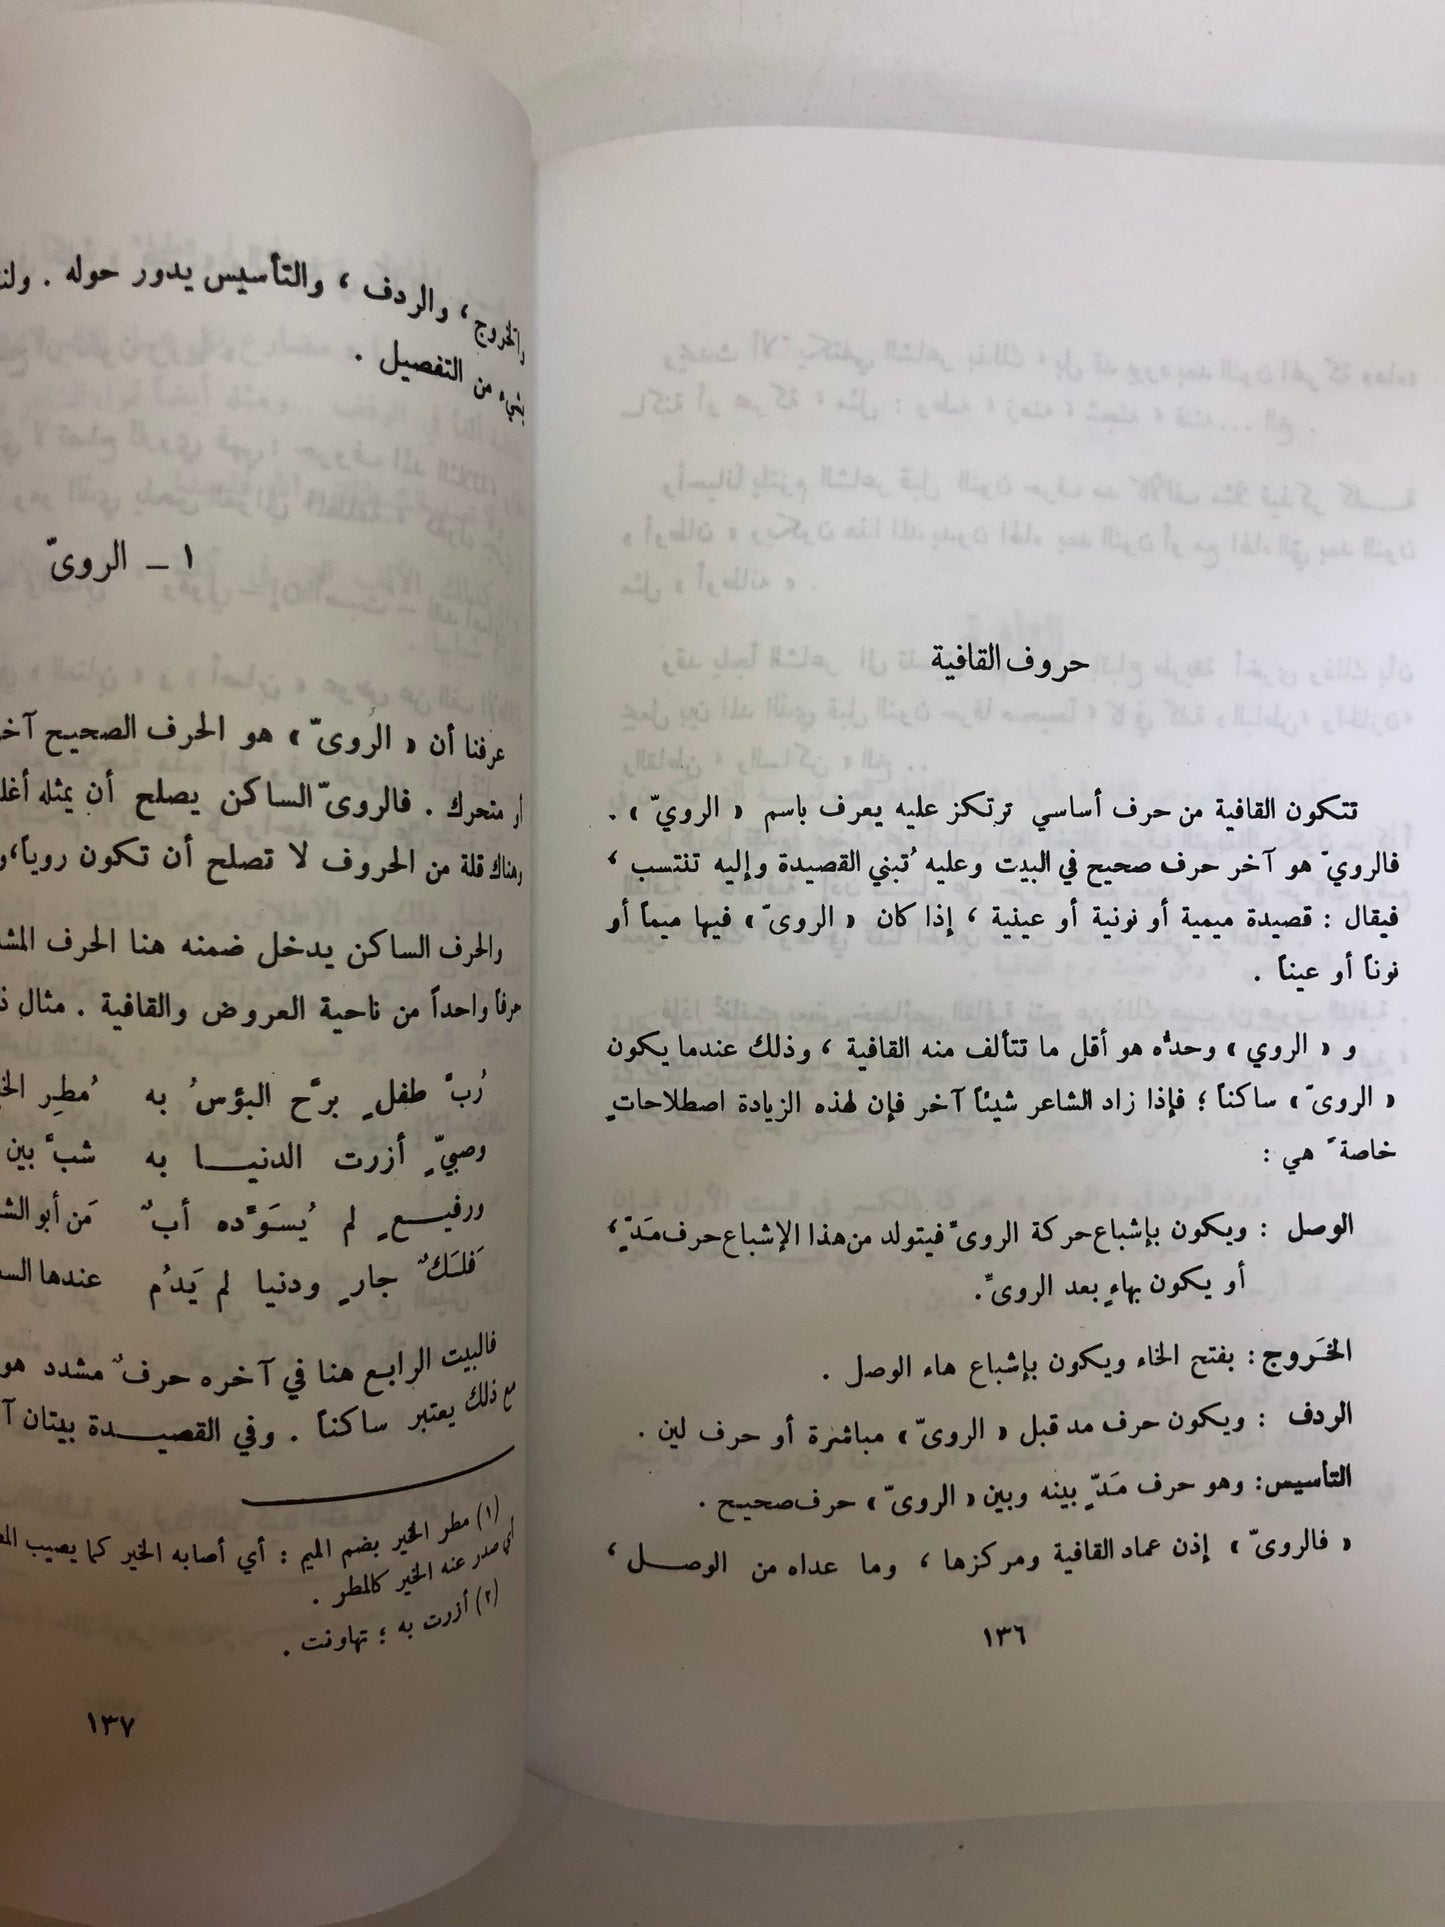 حروف القافية
تتكون القافية من حرف أساسي ترتكز عليه يعرف باسم « الرويّ » .
فالرويّ هو آخر حرف صحيح في البيت وعليه تُبني القصيدة وإليه تنتسب ،
فيقال : قصيدة ميمية أو نونية أو عينية ، إذا كان « الروىّ » فيها ميماً أو
نوناً أو عيناً .
و « الروي » وحدُه هو أقل ما تتألف منه القافية ، وذلك عندما يكون
« الروىّ » ساكناً ؛ فإذا زاد الشاعر شيئاً آخر فإن لهذه الزيادة اصطلاحاتٍ
خاصةً هي :
الوصل : ويكون بإشباع حركة الروىّ فيتولد من هذا الإشباع حرف مَدّ ،
أو يكون بهاءٍ بعد الروىّ .
الخَروج : بفتح الخاء ويكون بإشباع هاء الوصل .
الردف : ويكون حرف مد قبل « الروىّ » مباشرة أو حرف لين .
التأسيس : وهو حرف مَدّ بينه وبين « الروىّ » حرف صحيح .
« فالروىّ » إذن عماد القافية ومركزها ، وما عداه من الوصل ،
١٣٦
والخروج ، والردف ، والتأسيس يدور حوله .
بشيء من التفصيل .
١ – الروىّ
عرفنا أن « الروىّ » هو الحرف الصحيح
أو متحرك . فالروىّ الساكن يصلح أن يمثله
وهناك قلة من الحروف لا تصلح أن تكون روياً ،
والحرف الساكن يدخل ضمنه هنا الحرف
حرفاً واحداً من ناحية العروض والقافية . مثال
رُبَّ طفلٍ برَّح البؤسُ به مُطِر
وصبيٍّ أزرت الدنيا به شبَّ بين
ورفيعٍ لم يُسوَّده أبٌ مَن أبو
فَلَكٌ جارٍ ودنيا لم يَدُم عندها
فالبيت الرابع هنا في آخره حرفٌ مشدد هو
مع ذلك يعتبر ساكناً . وفي القصيدة بيتان
(١) مطر الخير بضم الميم : أي أصابه الخير كما يصيب
أي صدر عنه الخير كالمطر .
(٢) أزرت به : تهاونت .
١٣٧